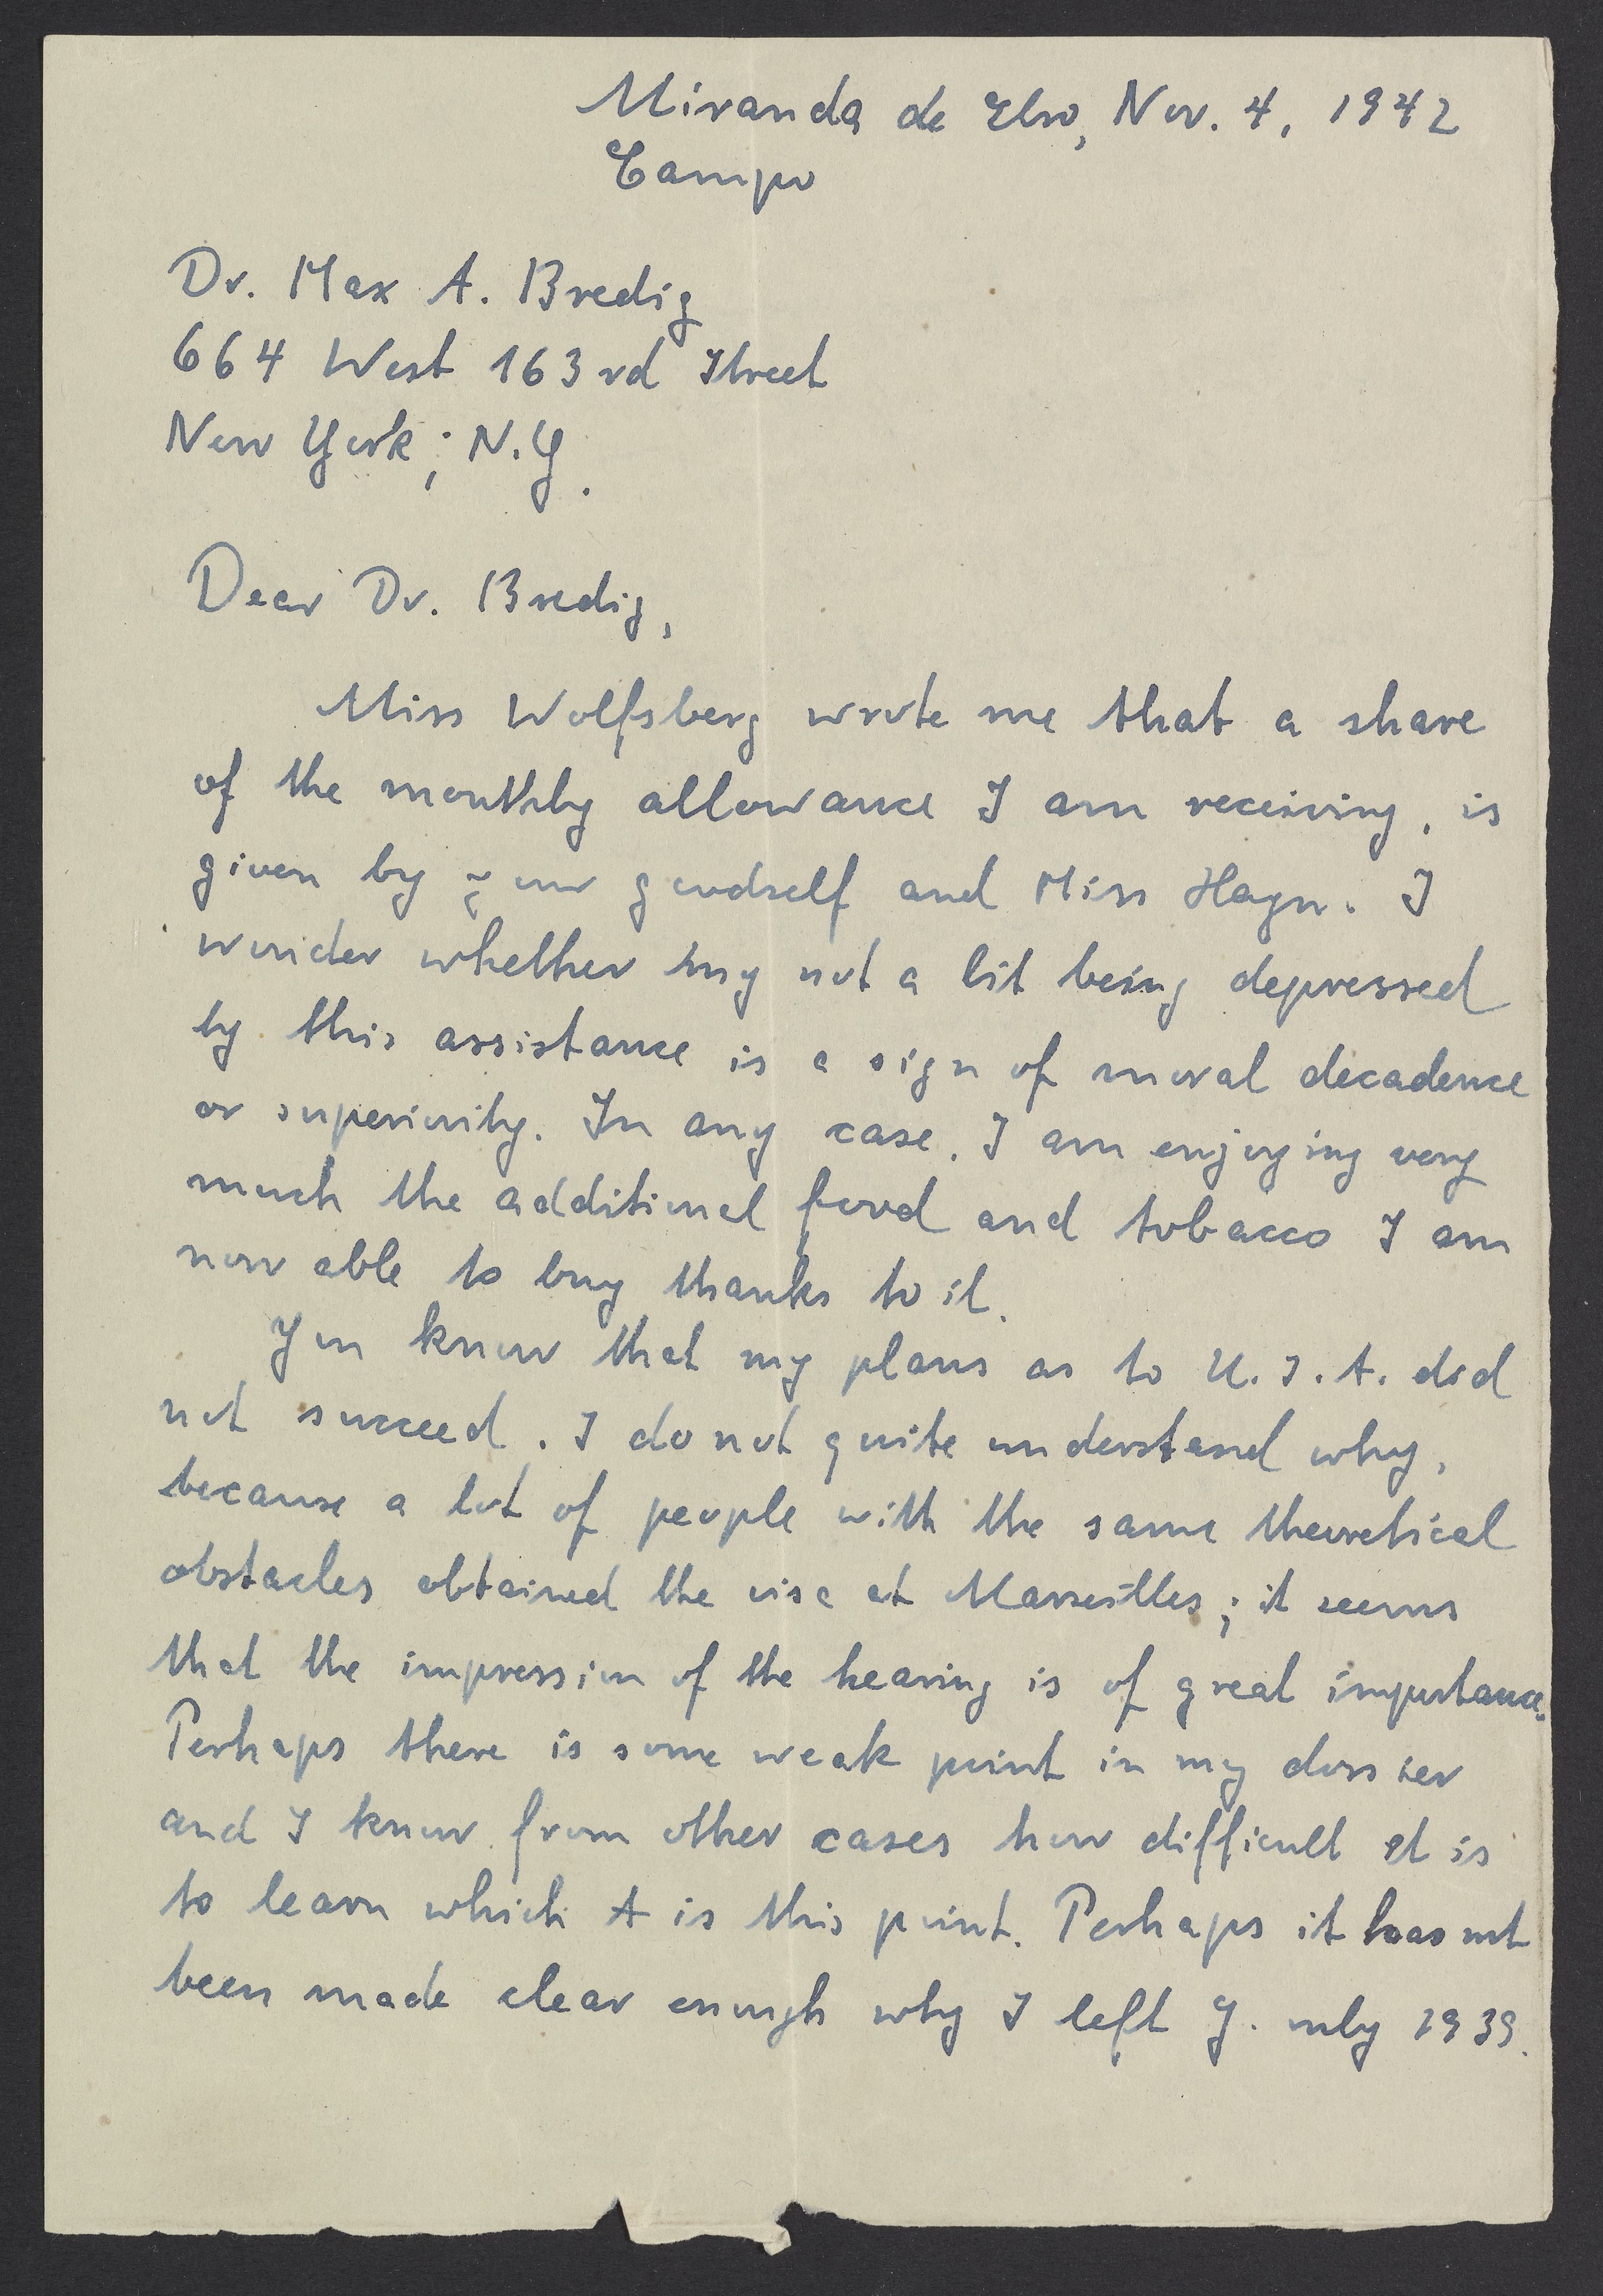 Miranda de Ebro, Nov. 4, 1942
Campo
Dr. Max A. Bredig
664 West 163rd Street
New York; N.Y.
Dear Dr. Bredig,
Miss Wolfsberg wrote me that a share
of the monthly allowance I am receiving, is
given by your goodself and Miss Hagn. I
wonder whether my not a bit being depressed
by this assistance is a sign of moral decadence
or superiority. In any case, I am enjoying very
much the additional food and tobacco I am
now able to buy thanks to it.
You know that my plans as to U.S.A. did
not succeed. I do not quite understand why,
because a lot of people with the same theoretical
obstacles obtained the visa at Marseilles; it seems
that the impression of the hearing is of great importance.
Perhaps there is some weak point in my dossier
and I know from other cases how difficult it is
to learn which is this point. Perhaps it has not
been made clear enough why I left G. only 1939.